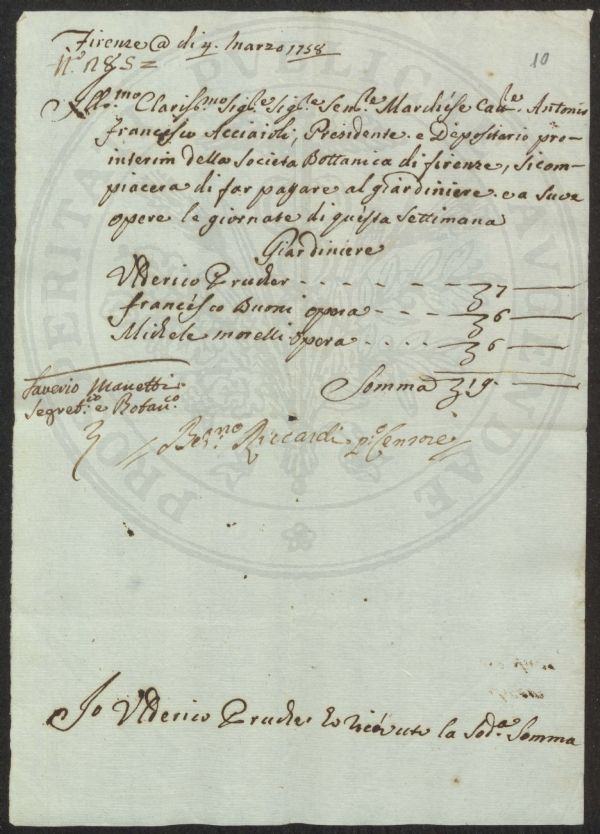 Firenze @ di 4. Marzo 1758
10
N.o 285=
Ill.mo Clariss.mo Sig.re Sig.re Sen.re Marchese Cav.re Antonio
Francesco Acciaioli, Presidente e Depositario pro=
interim della Societa Bottanica di firenze, si com=
piacera di far pagare al giardiniere e a sue
opere le giornate di questa Settimana
Giardiniere
Ulderico Prucher - - - - - - 7
francésco Buoni opera - - - 6
Michele morelli opera - - - - 6
Somma 19.
Saverio Manetti
Segret.o e Botan.co
Riccardi p.o Censore
Io Ulderico Prucher ho ricéuto la Sod.a Somma
PROSPERITATI PUBLICAE AUGENDAE